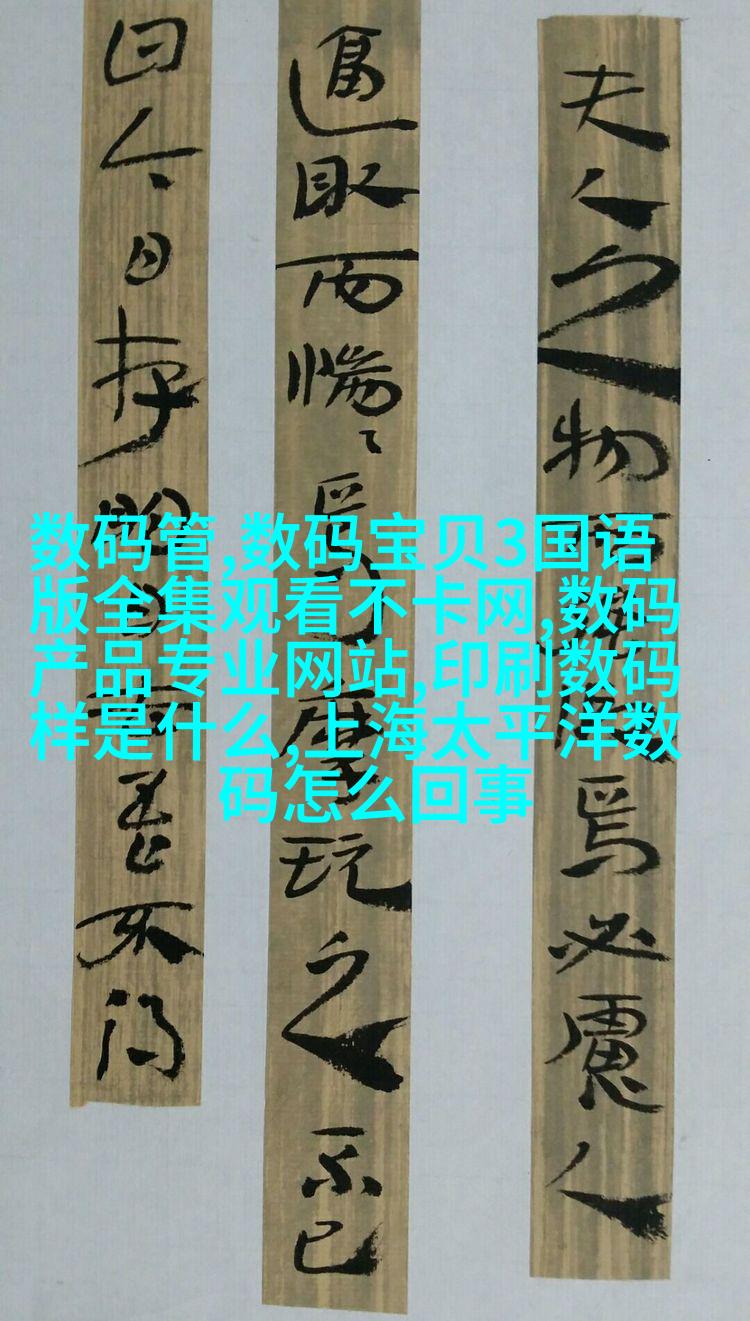 夫人之物而
焉必慮人
逼取而惴〻焉
玩之不已
曰今日存明日
不得
数码管,数码宝贝3国语
版全集观看不卡网,数码
产品专业网站,印刷数码
样是什么,上海太平洋数
码怎么回事